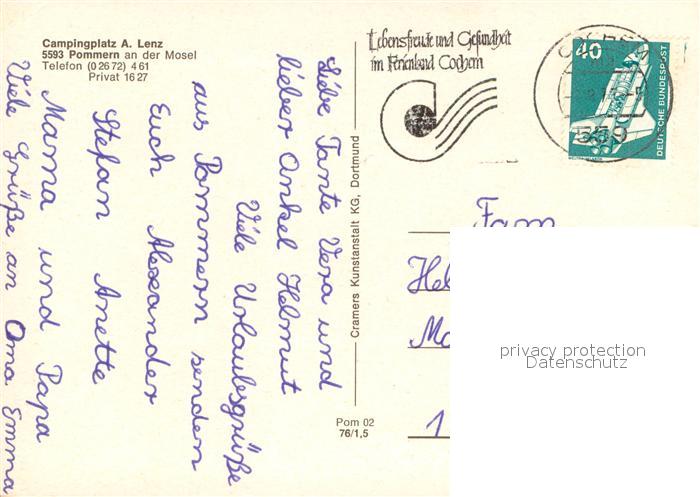 Campingplatz A. Lenz
5593 Pommern an der Mosel
Telefon (0 26 72) 4 61
Privat 16 27
Liebe Tante Vera und
lieber Onkel Helmut
Viele Urlaubsgrüße
aus Pommern senden
Euch Alexander
Stefan Anette
Mama und Papa
Viele Grüße an Oma Emma
Cramers Kunstanstalt KG, Dortmund
Pom 02
76/1,5
Lebensfreude und Gesundheit
im Ferienland Cochem
40
DEUTSCHE BUNDESPOST
Fam
Hel
1
privacy protection
Datenschutz